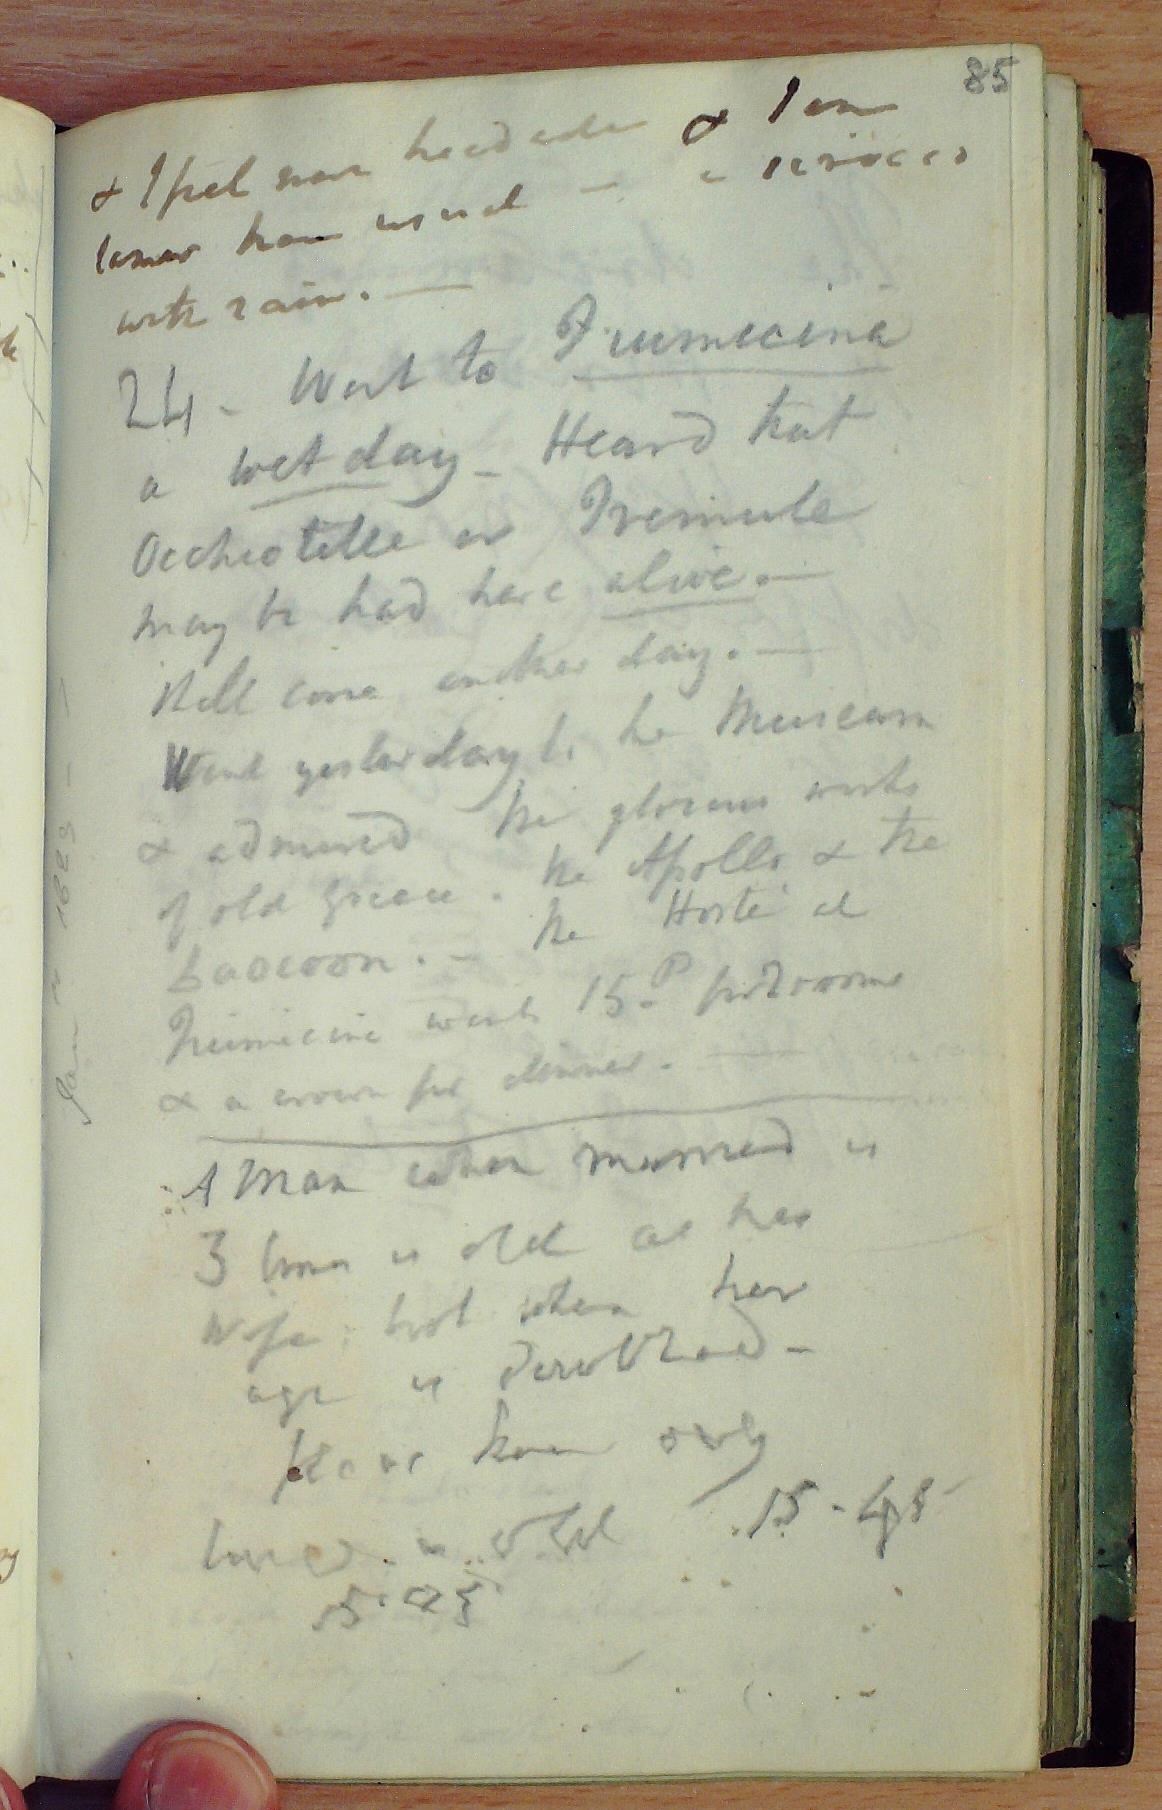 85
& I feel more headache & I am
lamer than usual – a scirocco
with rain. —
24 – Went to Fiumicina
a wet day – Heard that
Occhiatelle or Tremule
may be had here alive. —
Will come another day. —
Went yesterday to the Museum
& admired the glorious works
of old Greece. the Apollo & the
Laocoon. – the Hoste at
Fiumicine wants 15.P for 2 rooms
& a crown for dinner. —
A Man when married is
3 times as old as his
Wife; but when her
age is doubled –
he is
twice as old 15 - 45
Jan 1829 –